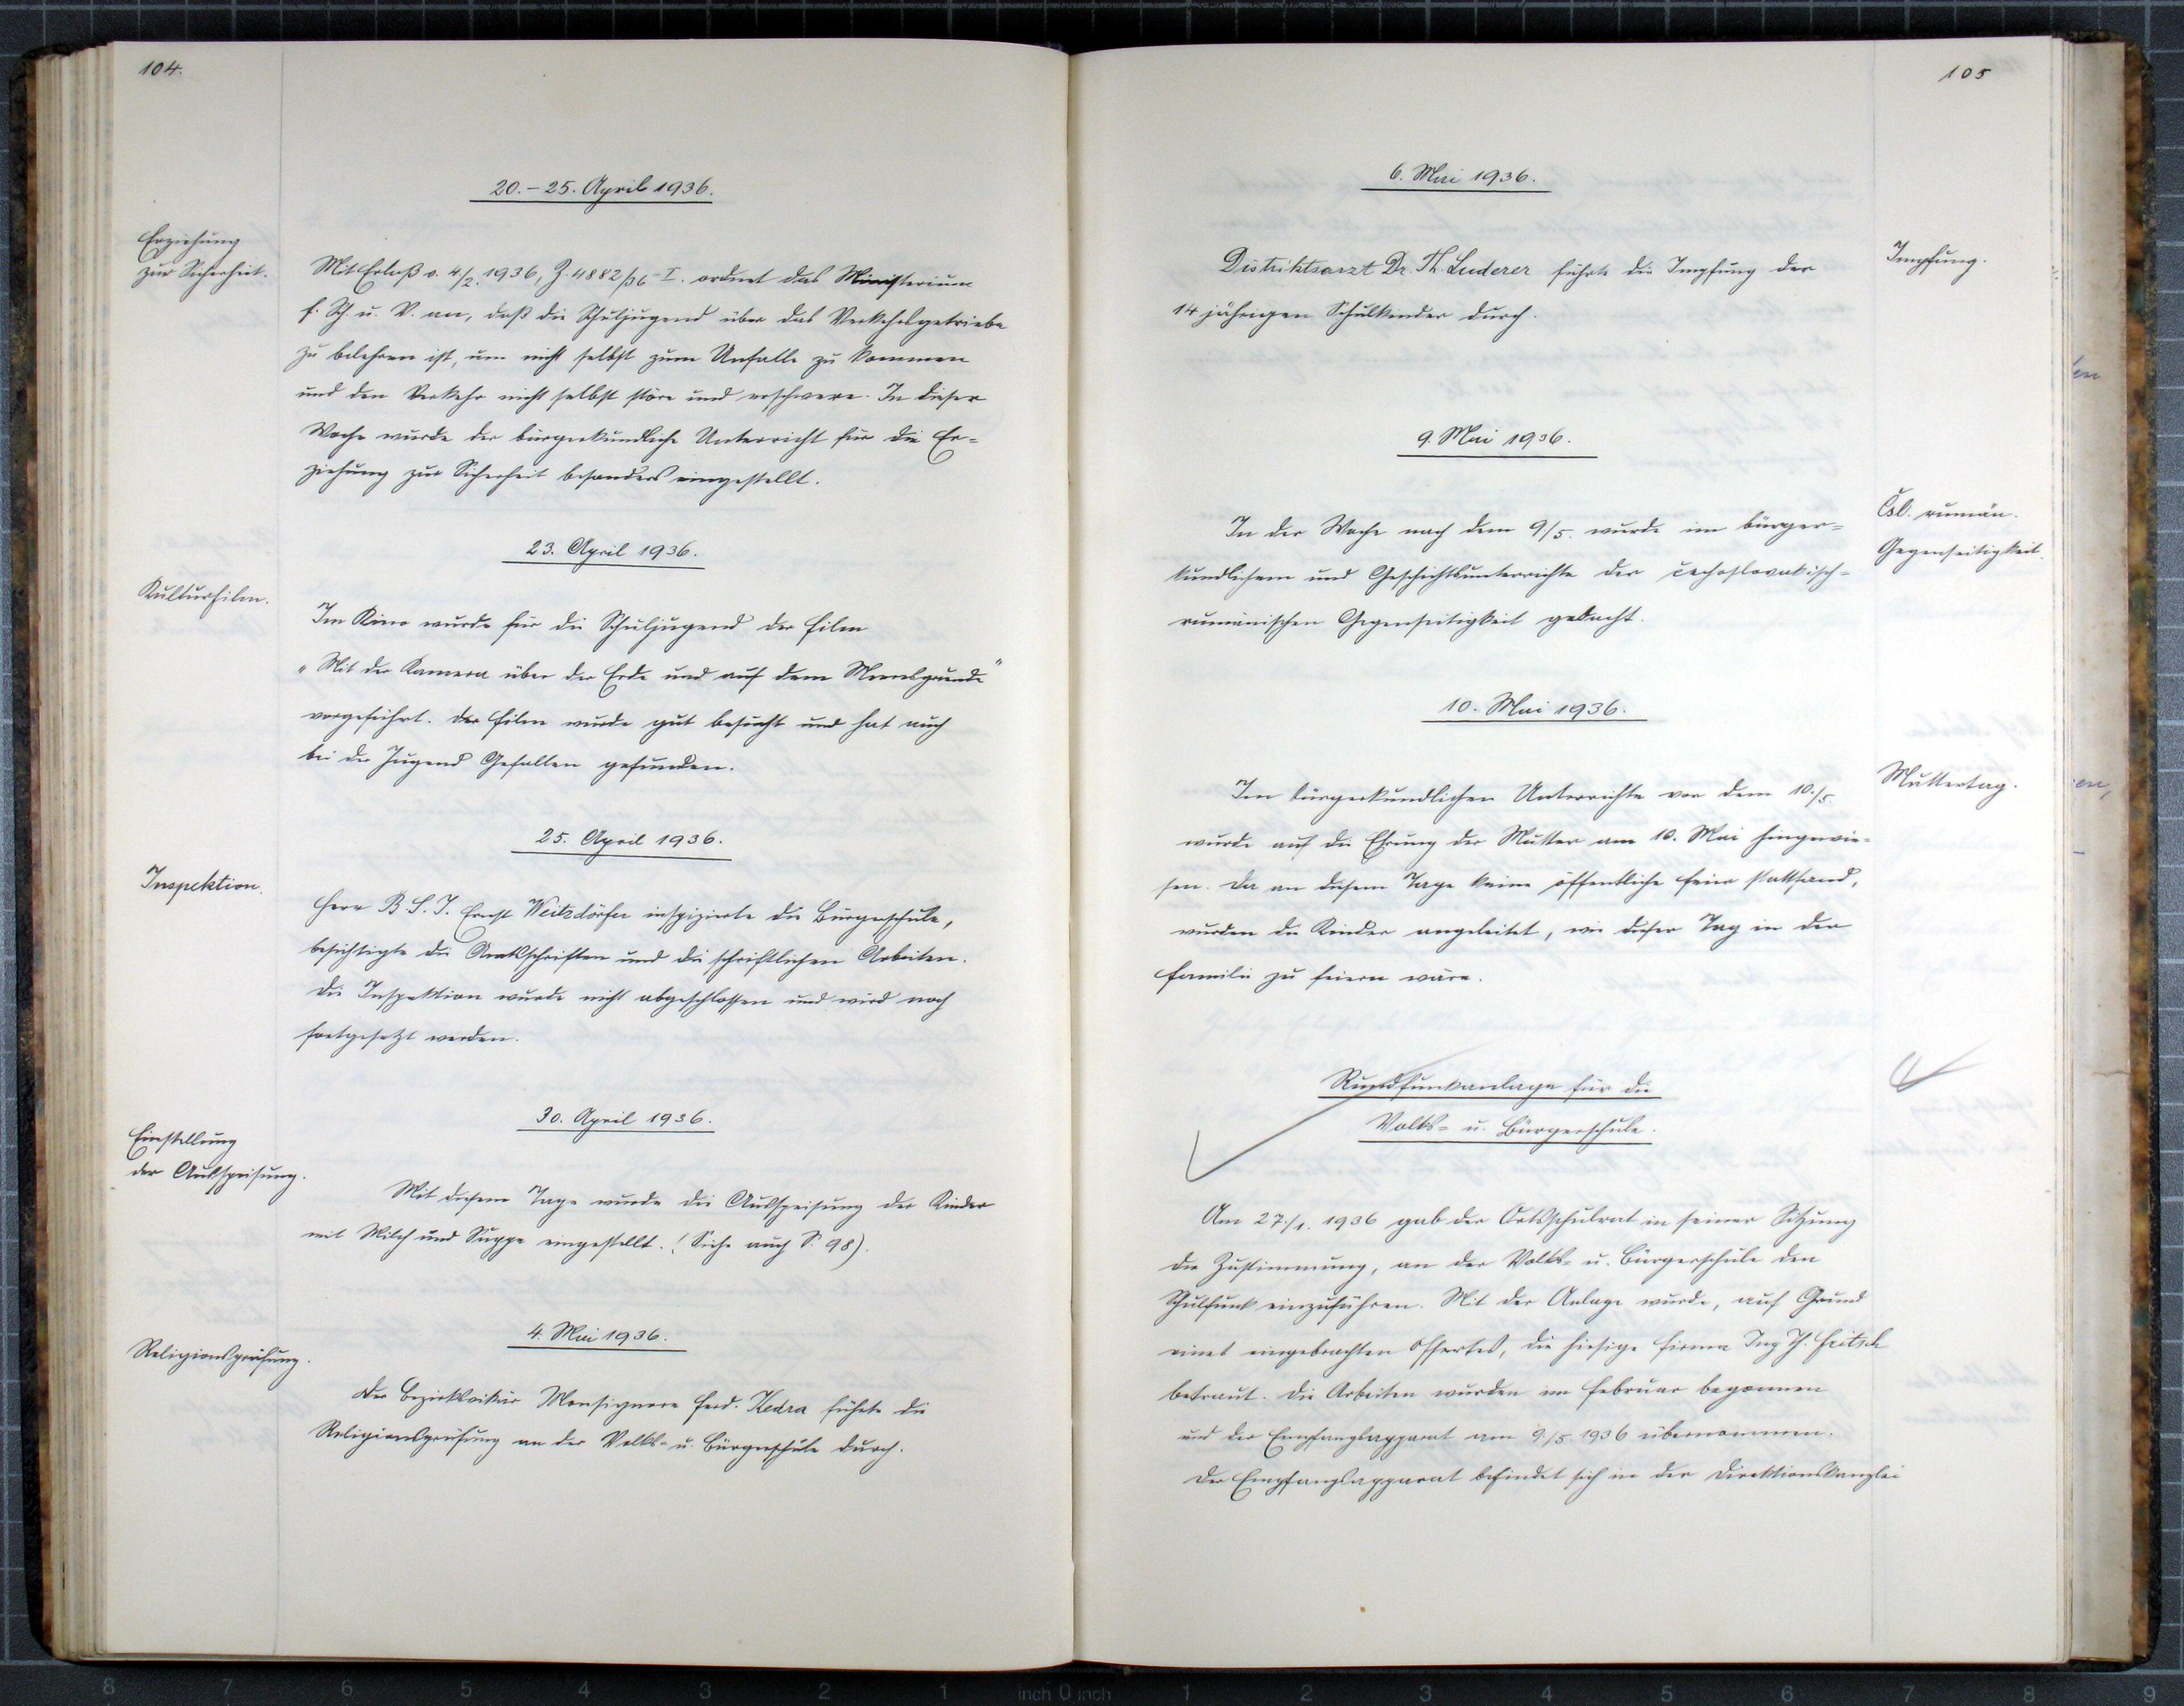 104.
20.–25. April 1936.
Erziehung
zur Sicherheit.
Mit Erlaß v. 4/2. 1936, Z. 4882/36-I. ordnet das Ministerium
f. Sch. u. V. an, daß die Schuljugend über das Verkehrsgetriebe
zu belehren ist, um nicht selbst zum Unfalle zu kommen
und den Verkehr nicht selbst störe und erschwere. In dieser
Woche wurde der bürgerkundliche Unterricht für die Er=
ziehung zur Sicherheit besonders eingestellt.
23. April 1936.
Kulturfilm.
Im Kino wurde für die Schuljugend der Film
„Mit der Kamera über der Erde und auf dem Meeresgrunde"
vorgeführt. Der Film wurde gut besucht und hat auch
bei der Jugend Gefallen gefunden.
25. April 1936.
Inspektion.
Herr B. S. I. Ernst Weitzdörfer inspizierte die Bürgerschule,
besichtigte die Amtsschriften und die schriftlichen Arbeiten.
Die Inspektion wurde nicht abgeschlossen und wird noch
fortgesetzt werden.
30. April 1936.
Einstellung
der Ausspeisung.
Mit diesem Tage wurde die Ausspeisung der Kinder
mit Milch und Suppe eingestellt. (Siehe auch S. 98).
4. Mai 1936.
Religionsprüfung.
Der Bezirksvikär Monsignore Ferd. Kedra führte die
Religionsprüfung an der Volks- u. Bürgerschule durch.
105
6. Mai 1936.
Impfung.
Distriktsarzt Dr. Th. Luderer führte die Impfung der
14 jährigen Schulkinder durch.
9. Mai 1936.
Čsl. rumän.
Gegenseitigkeit.
In der Woche nach dem 9/5. wurde im bürger=
kundlichem und Geschichtsunterrichte der čechoslovakisch-
rumänischen Gegenseitigkeit gedacht.
10. Mai 1936.
Muttertag.
Im bürgerkundlichen Unterrichte vor dem 10./5.
wurde auf die Ehrung der Mutter am 10. Mai hingewie-
sen. Da an diesem Tage keine öffentliche Feier stattfand,
wurden die Kinder angeleitet, wie dieser Tag in der
Familie zu feiern wäre.
Rundfunkanlage für die
Volks= u. Bürgerschule.
Am 27./1. 1936 gab der Ortsschulrat in seiner Sitzung
die Zustimmung, an der Volks- u. Bürgerschule den
Schulfunk einzuführen. Mit der Anlage wurde, auf Grund
eines eingebrachten Offertes, die hiesige Firma Ing. Th. Fritsch
betraut. Die Arbeiten wurden im Februar begonnen
und der Empfangsapparat am 9./5. 1936 übernommen.
Der Empfangsapparat befindet sich in der Direktionskanzlei